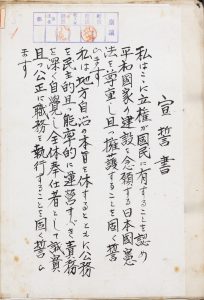 宣誓書
私はここに主権が国民に存することを認め
平和国家の建設を念願する日本国憲
法を尊重し且つ擁護することを固く誓
います
私は地方自治の本旨を体するとともに公務
を民主的且つ能率的に運営すべき責務
を深く自覚し全体の奉仕者として誠実
且つ公正に職務を執行することを固く誓い
ます